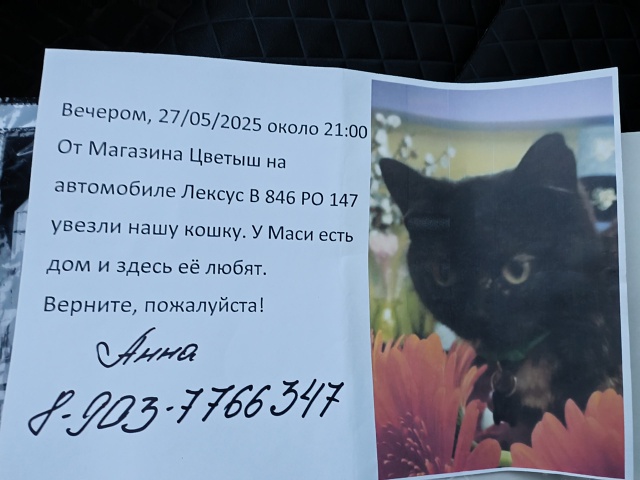 Вечером, 27/05/2025 около 21:00
От Магазина Цветыш на
автомобиле Лексус В 846 РО 147
увезли нашу кошку. У Маси есть
дом и здесь её любят.
Верните, пожалуйста!
Анна
8-903-7766347